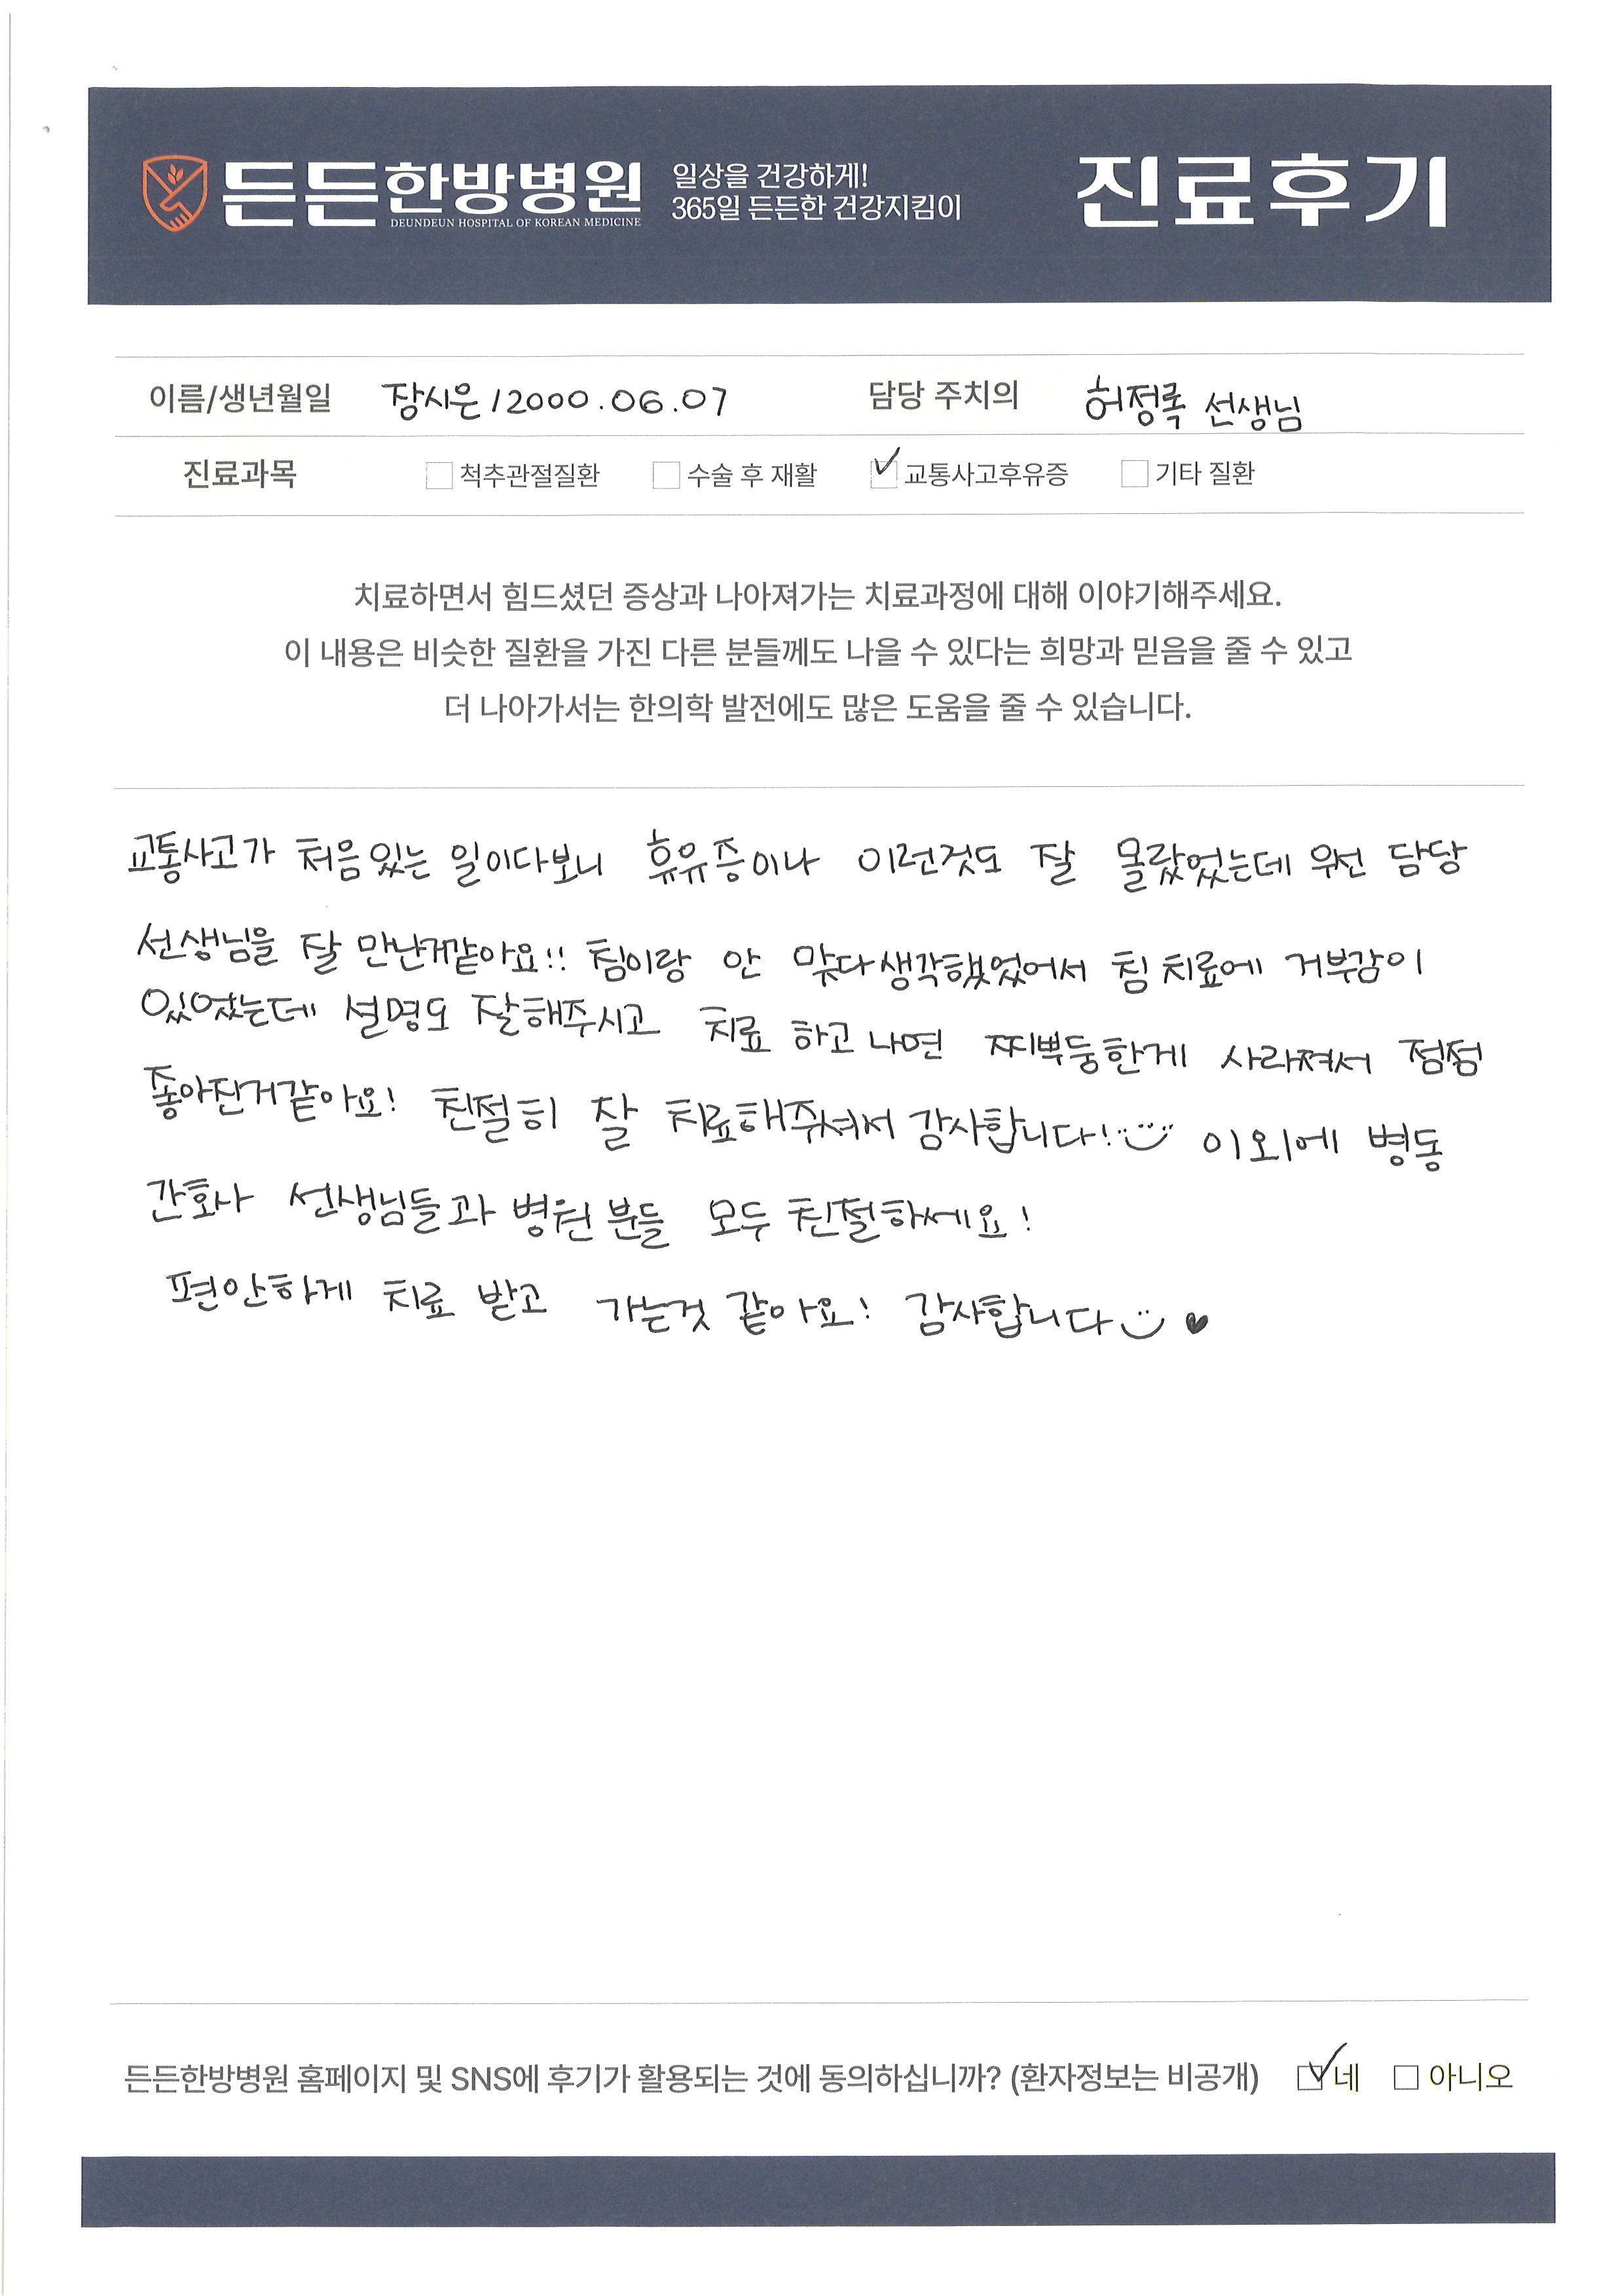 든든한방병원
DEUNDEUN HOSPITAL OF KOREAN MEDICINE
일상을 건강하게!
365일 든든한 건강지킴이
진료후기
이름/생년월일 장시은 / 2000.06.07 담당 주치의 허정록 선생님
진료과목 척추관절질환 수술 후 재활 교통사고후유증 기타 질환
치료하면서 힘드셨던 증상과 나아져가는 치료과정에 대해 이야기해주세요.
이 내용은 비슷한 질환을 가진 다른 분들께도 나을 수 있다는 희망과 믿음을 줄 수 있고
더 나아가서는 한의학 발전에도 많은 도움을 줄 수 있습니다.
교통사고가 처음 있는 일이다보니 휴유증이나 이런것도 잘 몰랐었는데 우선 담당
선생님을 잘 만난거같아요!! 침이랑 안 맞다 생각했었어서 침 치료에 거부감이
있었는데 설명도 잘해주시고 치료 하고 나면 찌뿌둥한게 사라져서 점점
좋아진거같아요! 친절히 잘 치료해주셔서 감사합니다! 이외에 병동
간호사 선생님들과 병원 분들 모두 친절하세요!
편안하게 치료 받고 가는것 같아요! 감사합니다 ♥
든든한방병원 홈페이지 및 SNS에 후기가 활용되는 것에 동의하십니까? (환자정보는 비공개) 네 아니오